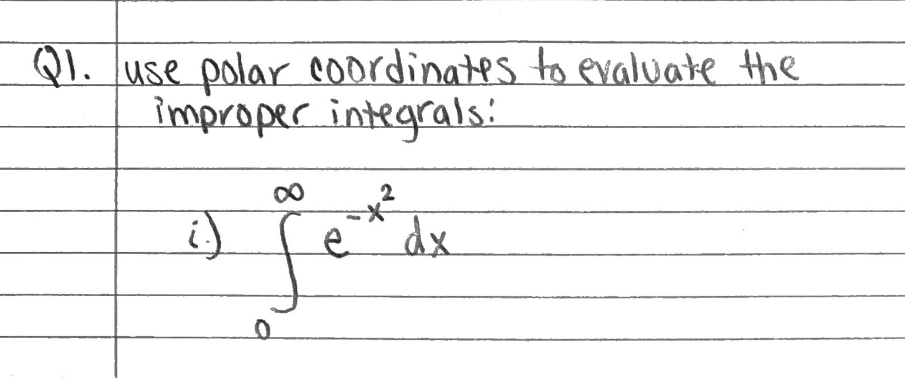 Q1. use polar coordinates to evaluate the
improper integrals:
i.) ∫₀^∞ e^(-x²) dx